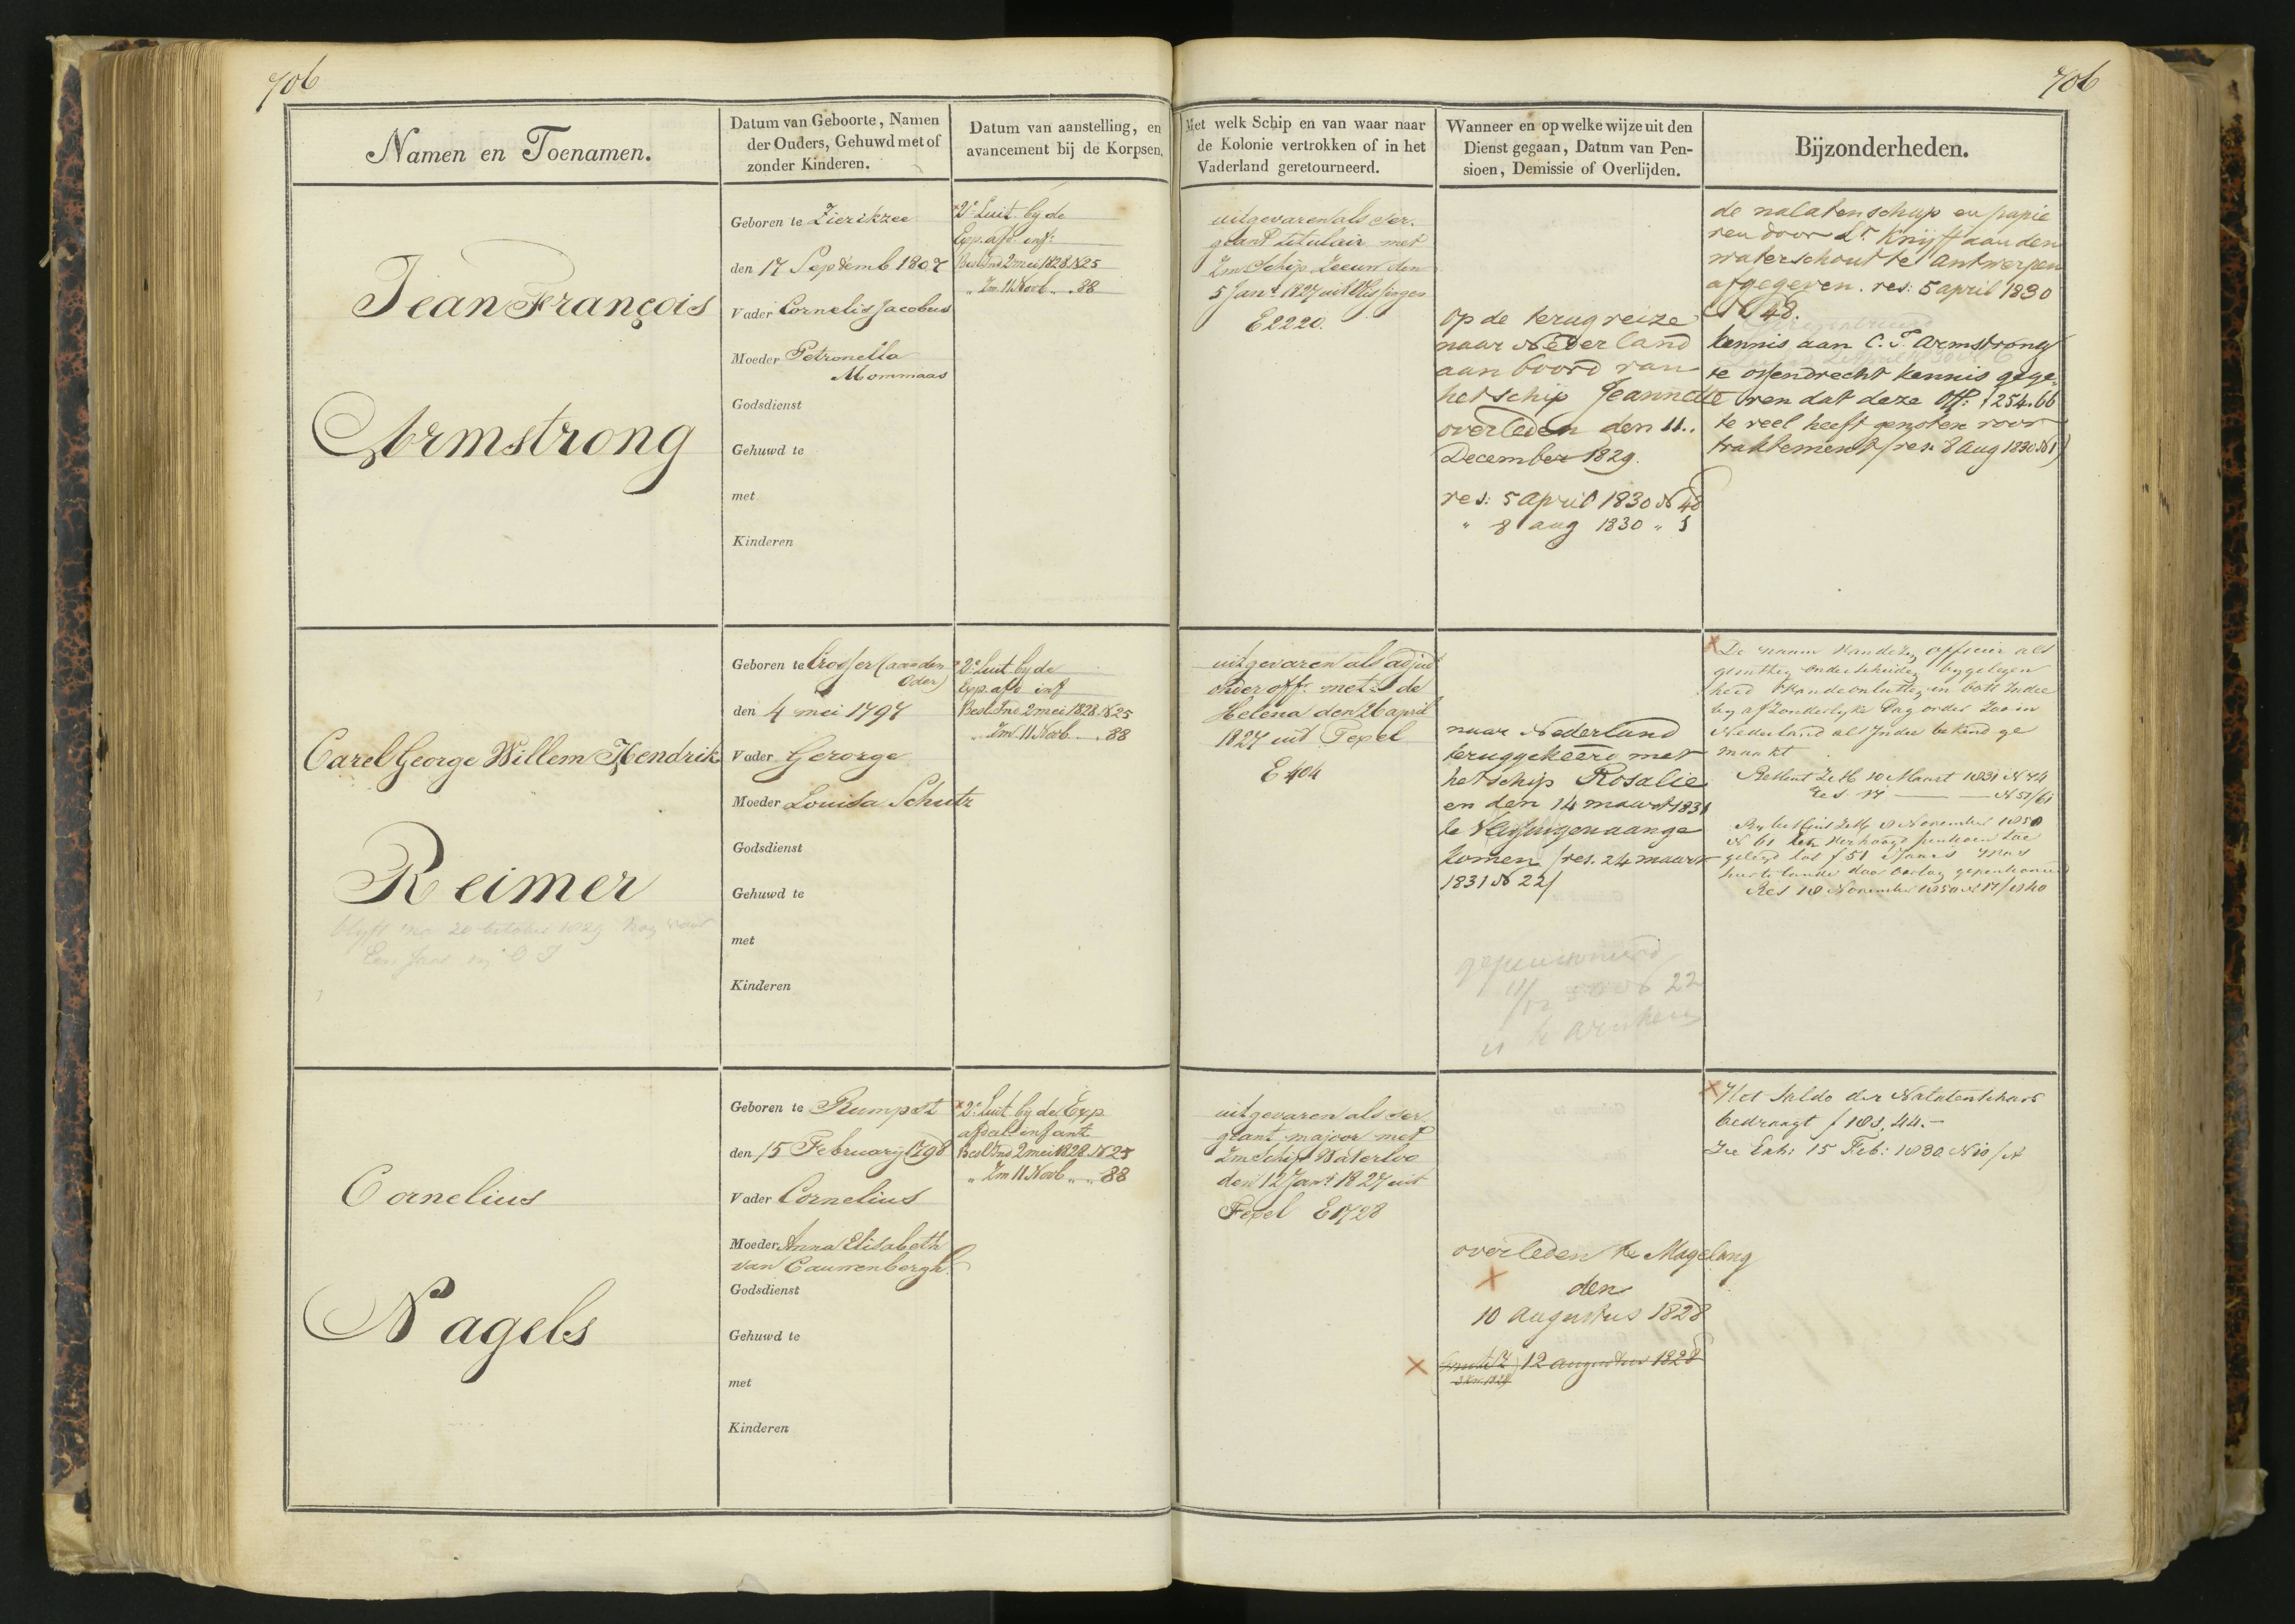 706
706
Namen en Toenamen.
Datum van Geboorte, Namen
der Ouders, Gehuwd met of
zonder Kinderen.
Datum van aanstelling, en
avancement bij de Korpsen.
Met welk Schip en van waar naar
de Kolonie vertrokken of in het
Vaderland geretourneerd.
Wanneer en op welke wijze uit den
Dienst gegaan, Datum van Pen-
sioen, Demissie of Overlijden.
Bijzonderheden.
Jean François
Armstrong
Geboren te Zierikzee
den 17 Septemb 1807
Vader Cornelis Jacobus
Moeder Petronella
Mommaas
Godsdienst
Gehuwd te
met
Kinderen
2e Luit. by de
Exp. afd. inf:
Besl. Ind 2 mei 1828 N 25
" Zm 11 Novb " " 88
uitgevaren als ser.
geant titulair met
Zm Schip Zeeuw den
5 Jan. 1827 uit Vlissingen
E 2220.
op de terugreize
naar Nederland
aan boord van
het schip Jeannette
overleden den 11..
December 1829.
res: 5 april 1830 N 48
" 8 aug 1830 " 1
de nalatenschap en papie
ren door Lr. Knijff aan den
waterschout te antwerpen
afgegeven. res: 5 april 1830
N 48.
kennis aan C. J. Armstrong
te ossendrecht kennis gege-
ven dat deze Off: f 254.66
te veel heeft genoten voor
traktement / res. 8 aug 1830 N 1)
Carel George Willem Hendrik
Reimer
blyft na 20 October 1829 nog voor
Een Jaar in O I
Geboren te Crosser (aan den
Oder)
den 4 mei 1797
Vader Gerorge
Moeder Louisa Schutz
Godsdienst
Gehuwd te
met
Kinderen
2e Luit by de
Exp. afd inf
Besl. Ind 2 mei 1828 N 25
" Zm 11 Novb " " 88
uitgevaren als adjud
onder offr. met de
Helena den 26 april
1827 uit Texel
E 404
naar Nederland
teruggekeerd met
het schip Rosalie
en den 14 maart 1831
te Vlissingen aange
komen / res. 24 maart
1831 N 22/
gepensioneerd
22
is te Arnhem
De naam van dezen officier als
onderscheiden bygelegen
heid in Oost Indie
by afzonderlyke Dag order zoo in
Nederland als Indie bekend ge
maakt
Besluit ZM 10 Maart 1831 N 74
Res. 17 — — N 51/61
By besluit ZM 8 November 1850
N 61 verhoogd pensioen toe
gelegd tot f 51 Jaars
hier te lande
Res 18 November 1850
Cornelius
Nagels
Geboren te Rumpst
den 15 February 1798
Vader Cornelius
Moeder Anna Elisabeth
van Cauwenbergh.
Godsdienst
Gehuwd te
met
Kinderen
2e Luit by de Exp
afdeel. infant.
Besl Ind 2 mei 1828 N 25
" Zm 11 Novb " " 88
uitgevaren als ser.
geant majoor met
Zm Schip Waterloo
den 12 Jan. 1827 uit
Texel E 1728
overleden te Magelang
den
10 augustus 1828
12 augustus 1828
Het saldo der Nalatenschap
bedraagt f 183,44.-
Zie Exh: 15 Feb: 1830 N 10/A